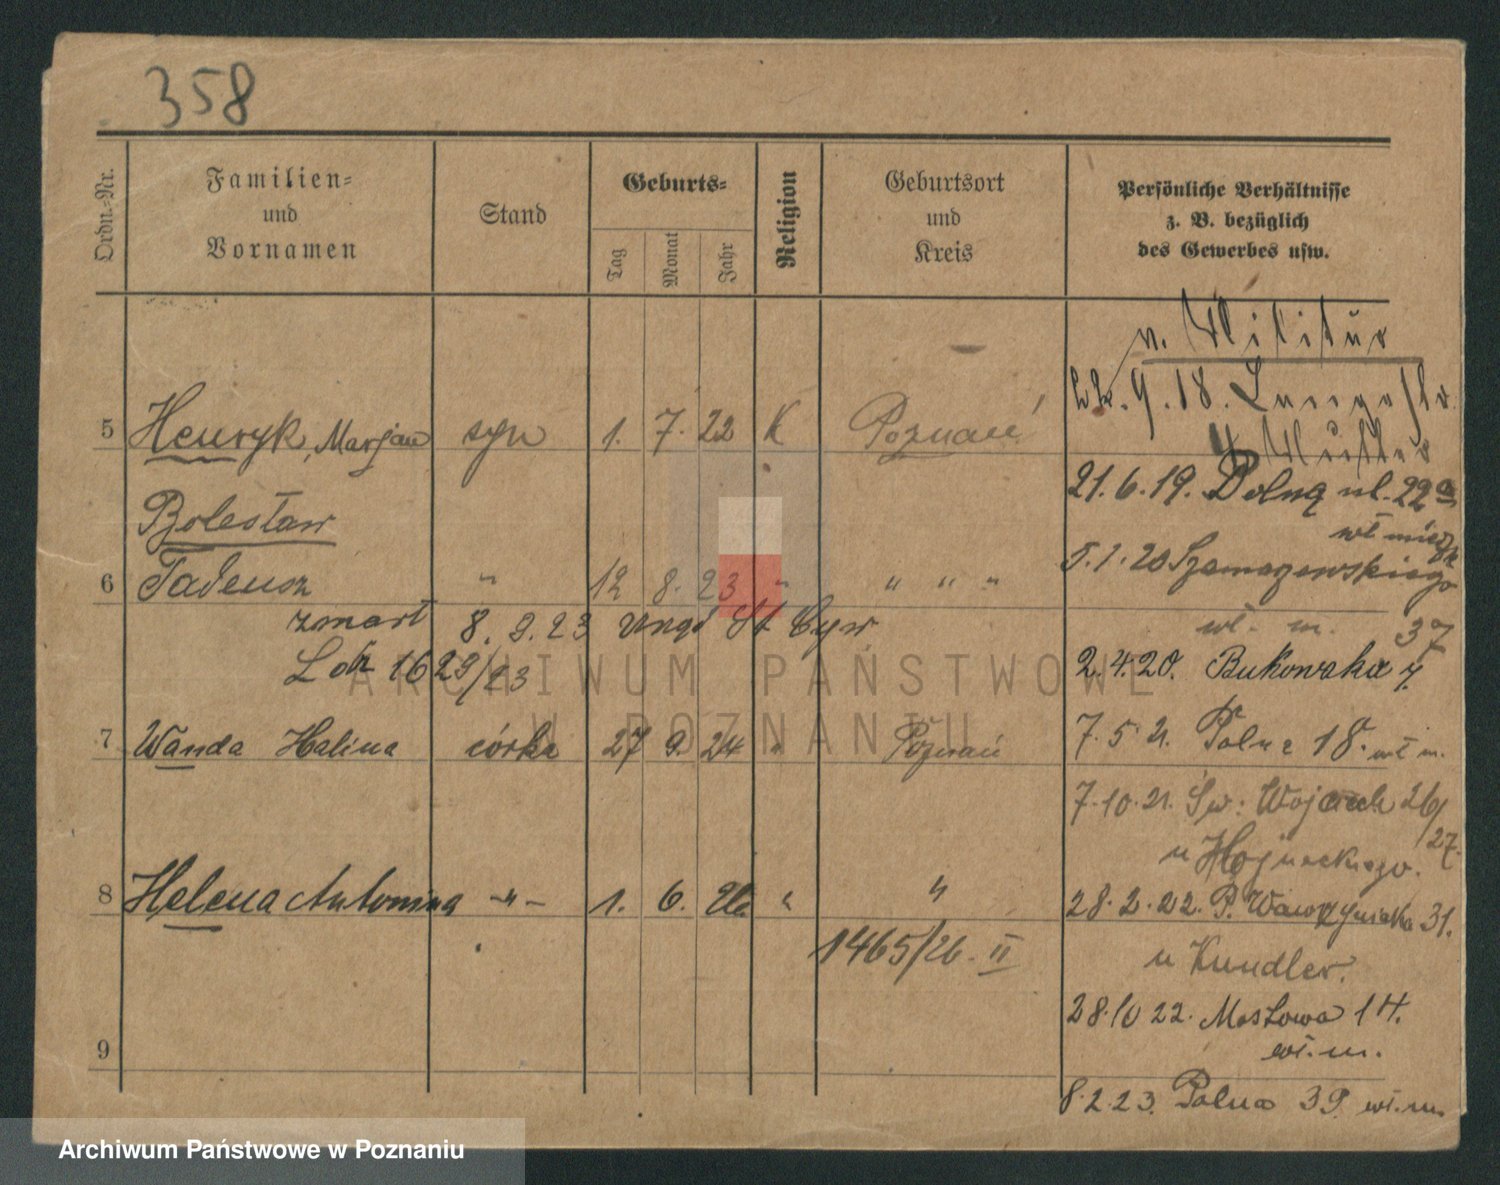 358
Ordn.-Nr.
Familien-
und
Vornamen
Stand
Geburts-
Tag
Monat
Jahr
Religion
Geburtsort
und
Kreis
Persönliche Verhältnisse
z. B. bezüglich
des Gewerbes usw.
v. Militär
9. 18.
5 Henryk, Marjan syn 1. 7. 22 K Poznań
21.6.19. Dolną ul. 22a
Bolesław
5.1.20 Szamarzewskiego
6 Tadeusz " 12 8. 23 " " " "
wł. m. 37
zmarł 8. 9. 23 Urząd St Cyw
2.4.20. Bukowska
L dz 1629/23
7 Wanda Halina córka 27 9. 24 " Poznań
7.5.21. Polna 18. wł m.
7.10.21. Św. Wojciech 26/27.
u
8 Helena Antonina -"- 1. 6. 26 " "
28.2.22. P. Wawrzyniaka 31.
1465/26. II
u Kundler.
28.10 22. Mostowa 14.
wł. m.
9
8.2.23. Polna 39. wł. m.
ARCHIWUM PAŃSTWOWE
W POZNANIU
Archiwum Państwowe w Poznaniu